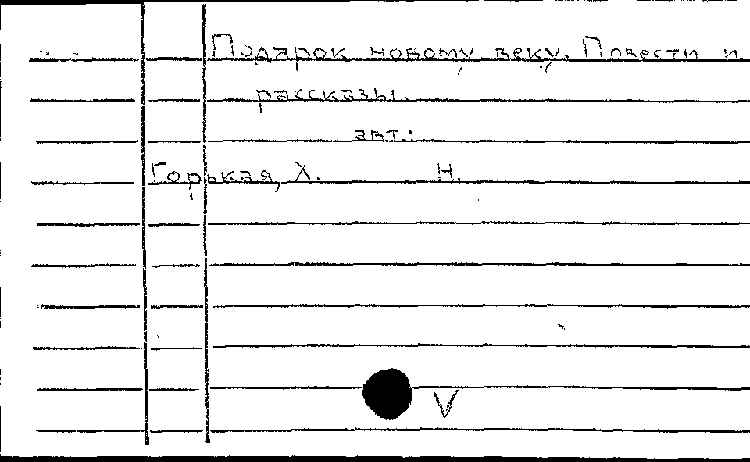 Подарок новому веку. Повести и
рассказы.
авт.:
Горькая, Х. Н.
V